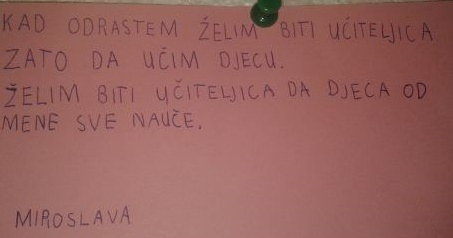 KAD ODRASTEM ŽELIM BITI UČITELJICA
ZATO DA UČIM DJECU.
ŽELIM BITI UČITELJICA DA DJECA OD
MENE SVE NAUČE.
MIROSLAVA